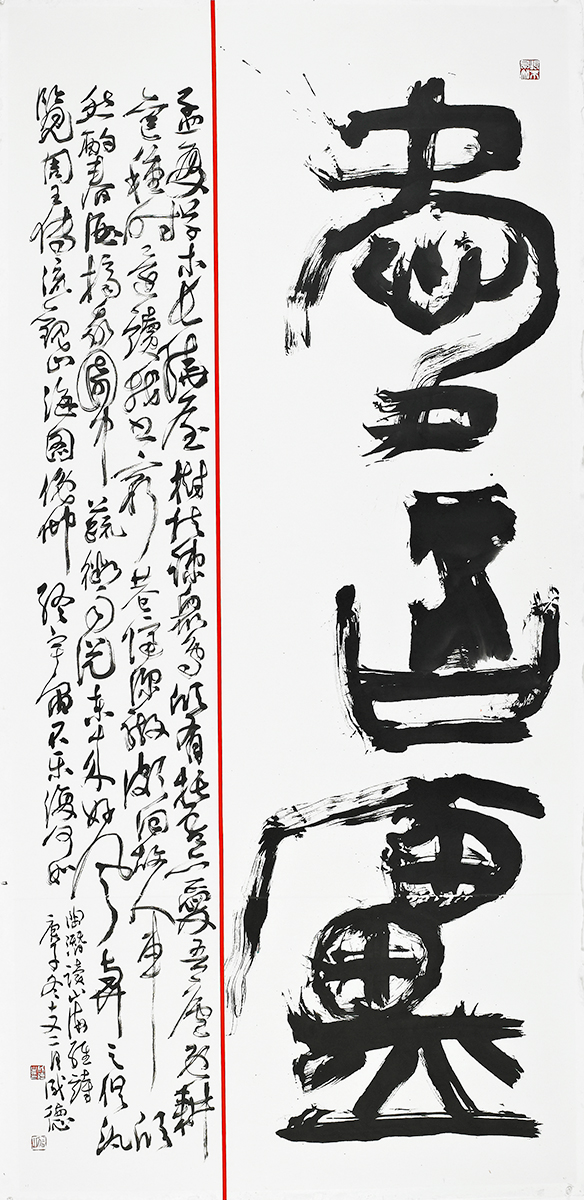 愛吾廬
孟夏草木長繞屋樹扶疎眾鳥欣有托吾亦愛吾廬既耕
亦種時還讀我書窮巷隔深轍頗回故人車欣
然酌春酒摘我園中蔬微雨從東來好風與之俱汎
覽周王傳流觀山海圖俯仰終宇宙不樂復何如
陶潛讀山海經詩
庚子冬二月成德